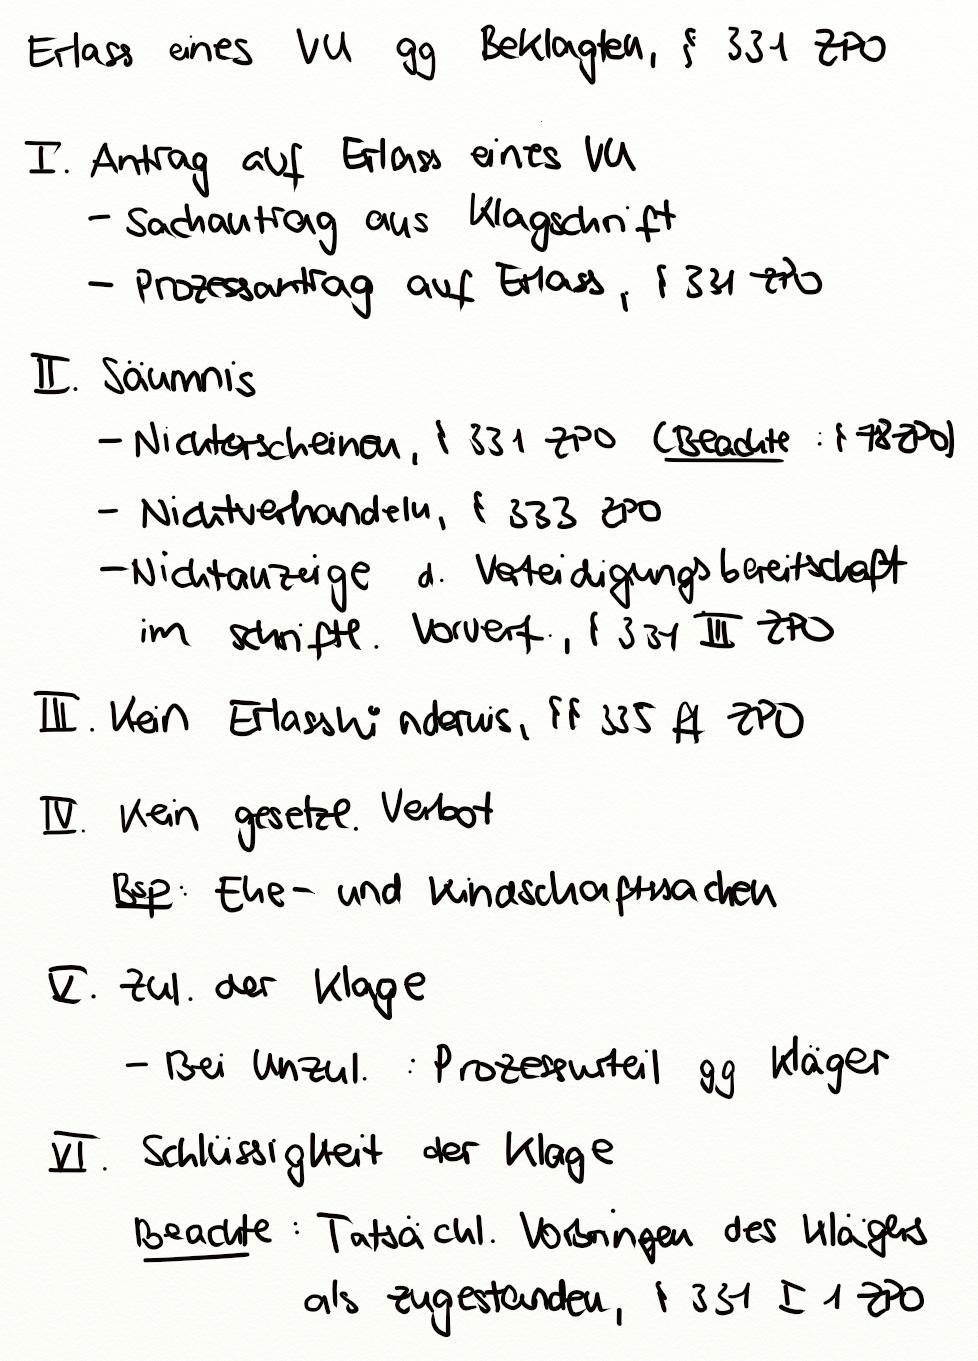 Erlass eines VU gg Beklagten, § 331 ZPO
I. Antrag auf Erlass eines VU
- Sachantrag aus Klagschrift
- Prozessantrag auf Erlass, § 331 ZPO
II. Säumnis
- Nichterscheinen, § 331 ZPO (Beachte : § 78 ZPO)
- Nichtverhandeln, § 333 ZPO
- Nichtanzeige d. Verteidigungsbereitschaft
im schriftl. Vorverf., § 331 III ZPO
III. Kein Erlasshindernis, §§ 335 ff ZPO
IV. Kein gesetzl. Verbot
Bsp: Ehe- und Kindschaftssachen
V. Zul. der Klage
- Bei Unzul. : Prozessurteil gg Kläger
VI. Schlüssigkeit der Klage
Beachte : Tatsächl. Vorbringen des Klägers
als zugestanden, § 331 I 1 ZPO